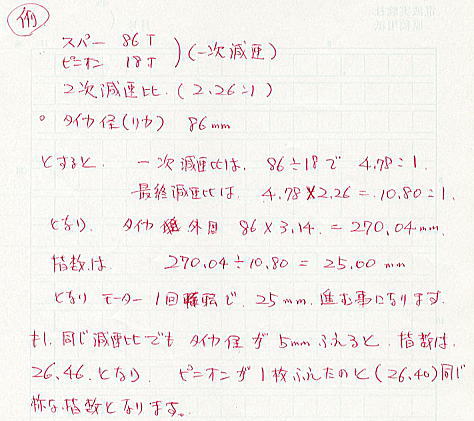 例
スパー 86T
ピニオン 18T ) (一次減速)
2次減速比. (2.26:1)
○ タイヤ径(リヤ) 86mm
とすると. 一次減速比は. 86÷18で 4.78:1.
最終減速比は. 4.78×2.26=.10.80:1.
となり. タイヤ 外周 86×3.14.=270.04mm.
指数は. 270.04÷10.80=25.00mm
となり モーター1回転で. 25mm.進む事になります.
もし.同じ減速比でも タイヤ径が 5mmふえると.指数は.
26.46.となり. ピニオンが1枚ふえたのと(26.40)同じ
様な指数となります。